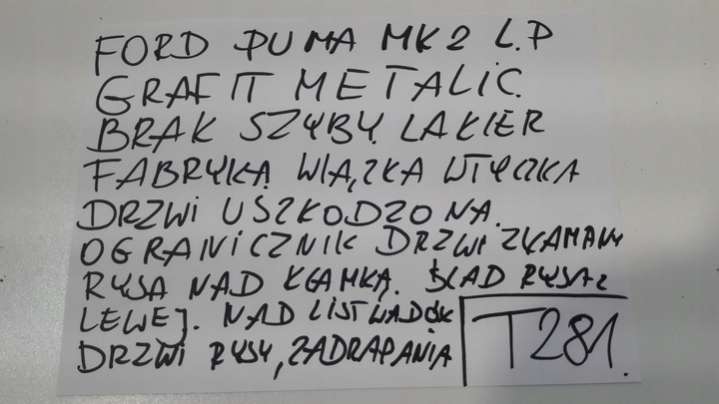 FORD PUMA MK2 L.P
GRAFIT METALIC.
BRAK SZYBY, LAKIER
FABRYKA, WIĄZKA WTYCZKA
DRZWI USZKODZONA.
OGRANICZNIK DRZWI ZŁAMANY
RYSA NAD KLAMKĄ. ŚLAD RYSA Z
LEWEJ. NAD LISTWA DÓŁ
DRZWI RYSY, ZADRAPANIA
T281.